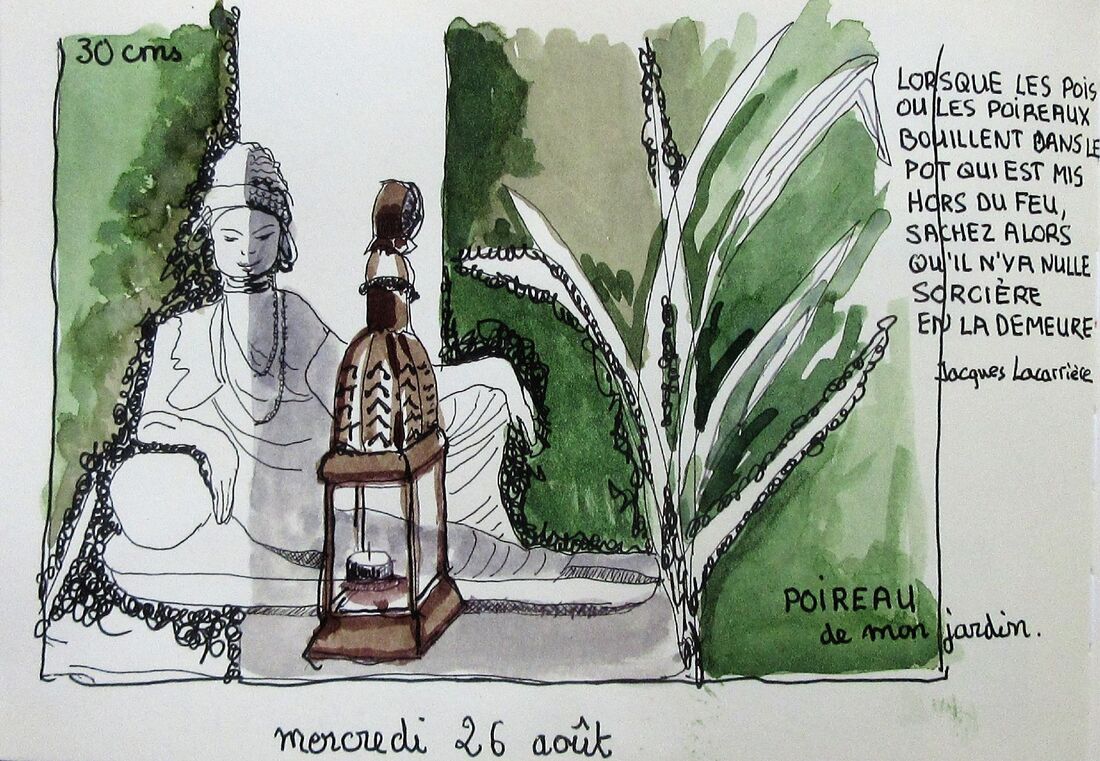 30 cms
LORSQUE LES POIS
OU LES POIREAUX
BOUILLENT DANS LE
POT QUI EST MIS
HORS DU FEU,
SACHEZ ALORS
QU'IL N'Y A NULLE
SORCIÈRE
EN LA DEMEURE
Jacques Lacarrière
POIREAU
de mon jardin.
mercredi 26 août